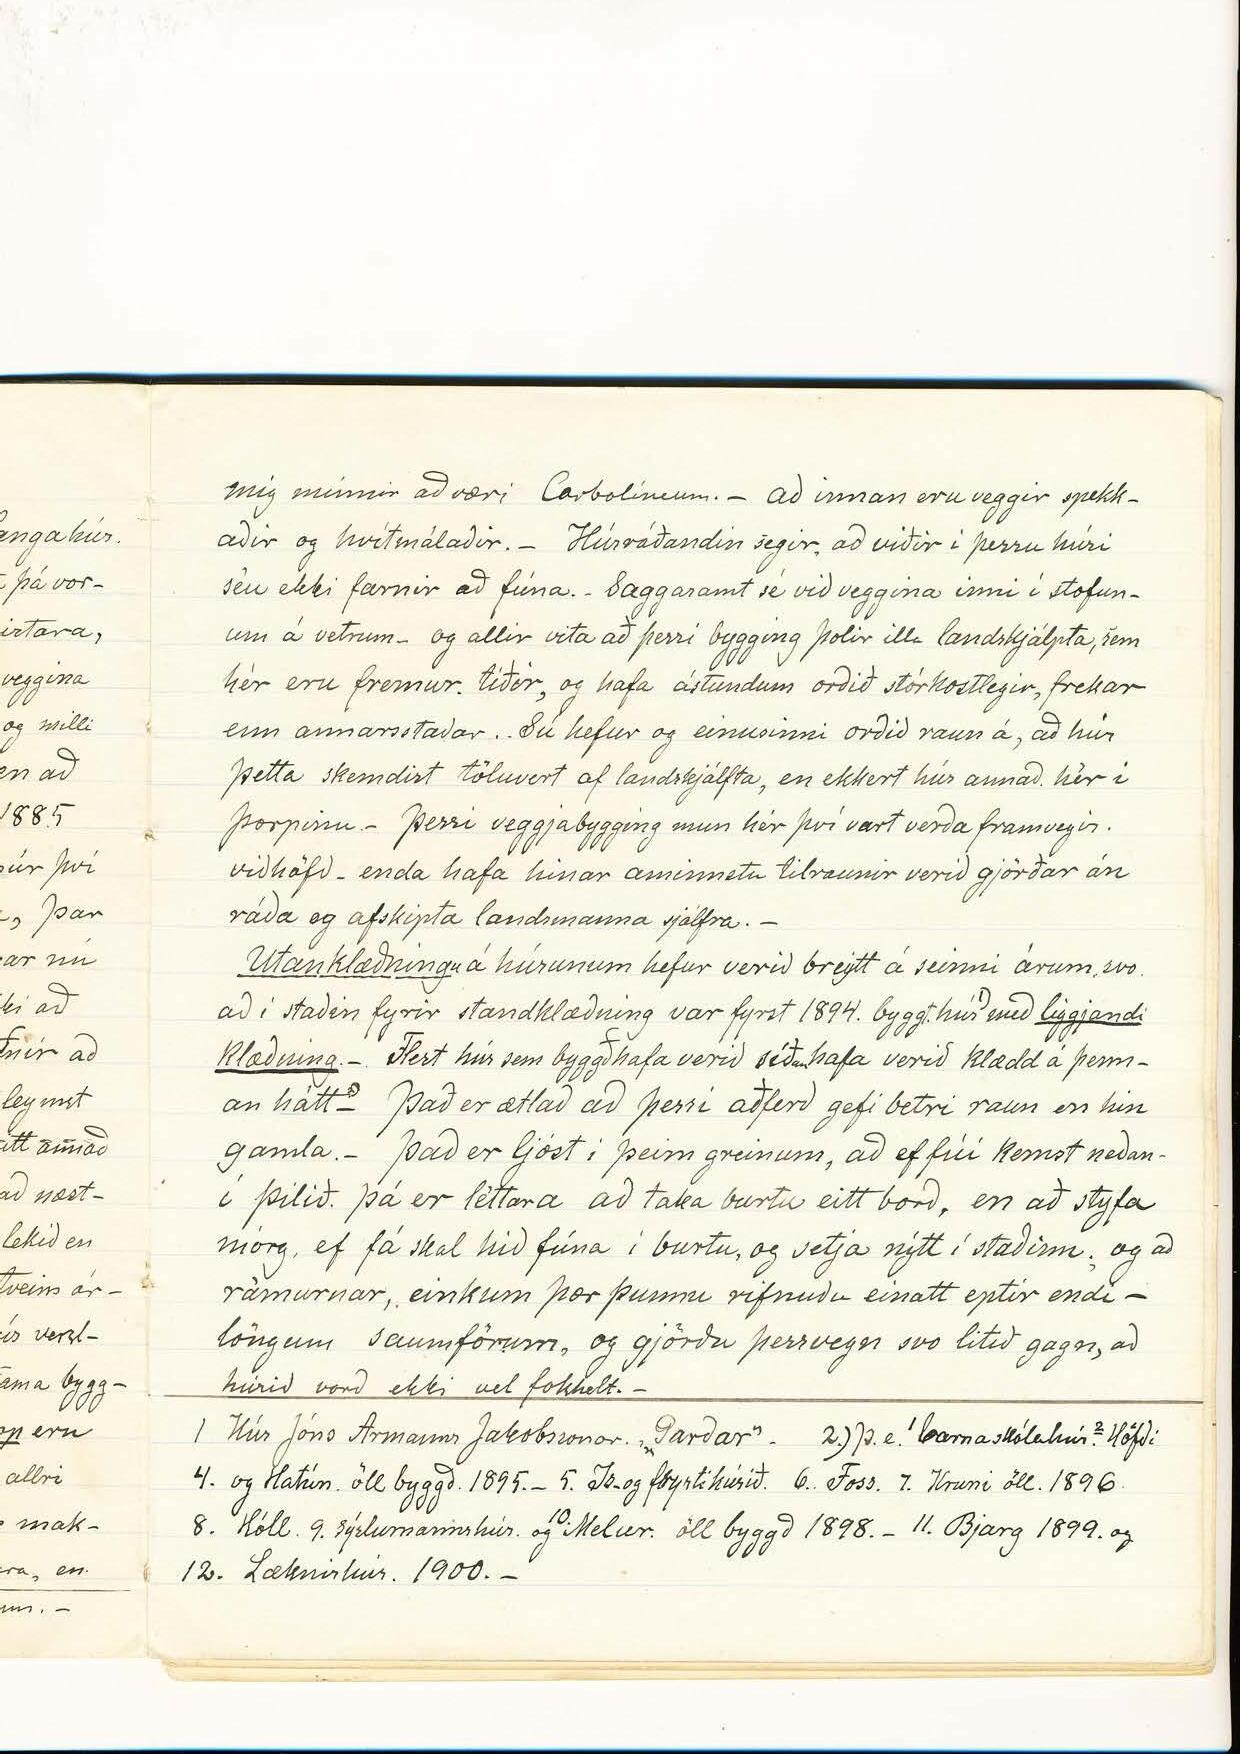 mig minnir að væri Carbolineum. – að innan eru veggir spekk-
aðir og hvítmálaðir. – Húsráðandin segir, að viðir í þessu húsi
séu ekki farnir að fúna. – Saggasamt sé við veggina inni í stofun-
um á vetrum – og allir vita að þessi bygging þolir illa landskjálpta, sem
hér eru fremur tíðir, og hafa ástundum orðið stórkostlegir, frekar
enn annarsstaðar. Sú hefur og einusinni orðið raun á, að hús
þetta skemdist töluvert af landskjálfta, en ekkert hús annað hér í
þorpinu. – Þessi veggjabygging mun hér því vart verða framvegis
viðhöfð – enda hafa hinar aminnstu tilraunir verið gjörðar án
ráða og afskipta landsmanna sjálfra. –
Utanklæðningu á húsunum hefur verið breytt á seinni árum, svo
að í staðin fyrir standklæðning var fyrst 1894. byggt hús 1) með liggjandi
klæðning. – Flest hús sem byggð hafa verið síðan hafa verið klædd á þenn-
an hátt 2) – Það er ætlað að þessi aðferð gefi betri raun en hin
gamla. – Það er ljóst í þeim greinum, að ef fúi kemst neðan-
í þilið, þá er léttara að taka burtu eitt borð, en að styfa
mörg, ef fá skal hið fúna í burtu, og setja nýtt í staðinn; og að
rámurnar, einkum þær þunnu rifnuðu einatt eptir endi-
löngum saumförum, og gjörðu þessvegn svo litið gagn, að
húsið varð ekki vel fokhelt. –
1 Hús Jóns Armanns Jakobssonar. „Garðar“ – 2.) þ. e. 1 barnaskólahús. 2 Höfði
4. og Hatún. öll byggð. 1895. – 5. Is- og frystihúsið. 6. Foss. 7. Hruni öll. 1896
8. Hóll. 9. sýslumannshús. og 10. Melur. öll byggð 1898. – 11. Bjarg 1899. og
12. Læknishús. 1900. –